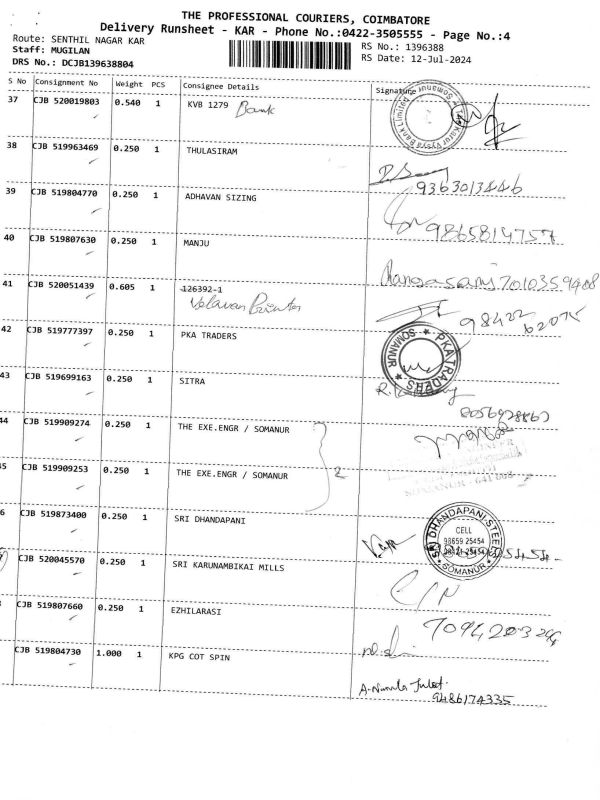 THE PROFESSIONAL COURIERS, COIMBATORE
Delivery Runsheet - KAR - Phone No.:0422-3505555 - Page No.:4
Route: SENTHIL NAGAR KAR
RS No.: 1396388
Staff: MUGILAN
RS Date: 12-Jul-2024
DRS No.: DCJB139638804
S No Consignment No Weight PCS Consignee Details Signature
37 CJB 520019803 0.540 1 KVB 1279 Bank
38 CJB 519963469 0.250 1 THULASIRAM
9363013446
39 CJB 519804770 0.250 1 ADHAVAN SIZING
9865814757
40 CJB 519807630 0.250 1 MANJU
7010359408
41 CJB 520051439 0.605 1 126392-1
Velavan Printers
98422
62075
42 CJB 519777397 0.250 1 PKA TRADERS
★ PKA TRADERS ★ SOMANUR
43 CJB 519699163 0.250 1 SITRA
44 CJB 519909274 0.250 1 THE EXE.ENGR / SOMANUR
2
45 CJB 519909253 0.250 1 THE EXE.ENGR / SOMANUR
SOMANUR - 641 668
6 CJB 519873400 0.250 1 SRI DHANDAPANI
SRI DHANDAPANI STEEL
CELL
98659 25454
SOMANUR
CJB 520045570 0.250 1 SRI KARUNAMBIKAI MILLS
CJB 519807660 0.250 1 EZHILARASI
CJB 519804730 1.000 1 KPG COT SPIN
9486174335